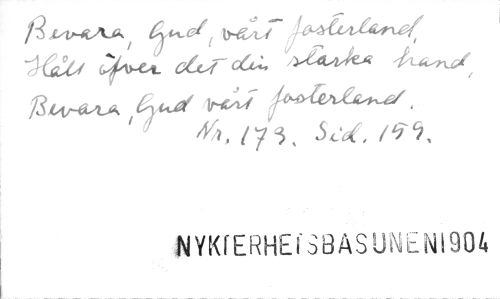 Bevara, Gud, vårt fosterland,
Håll öfver det din starka hand,
Bevara, Gud vårt fosterland.
Nr. 173. Sid. 159.
NYKTERHETSBASUNEN1904